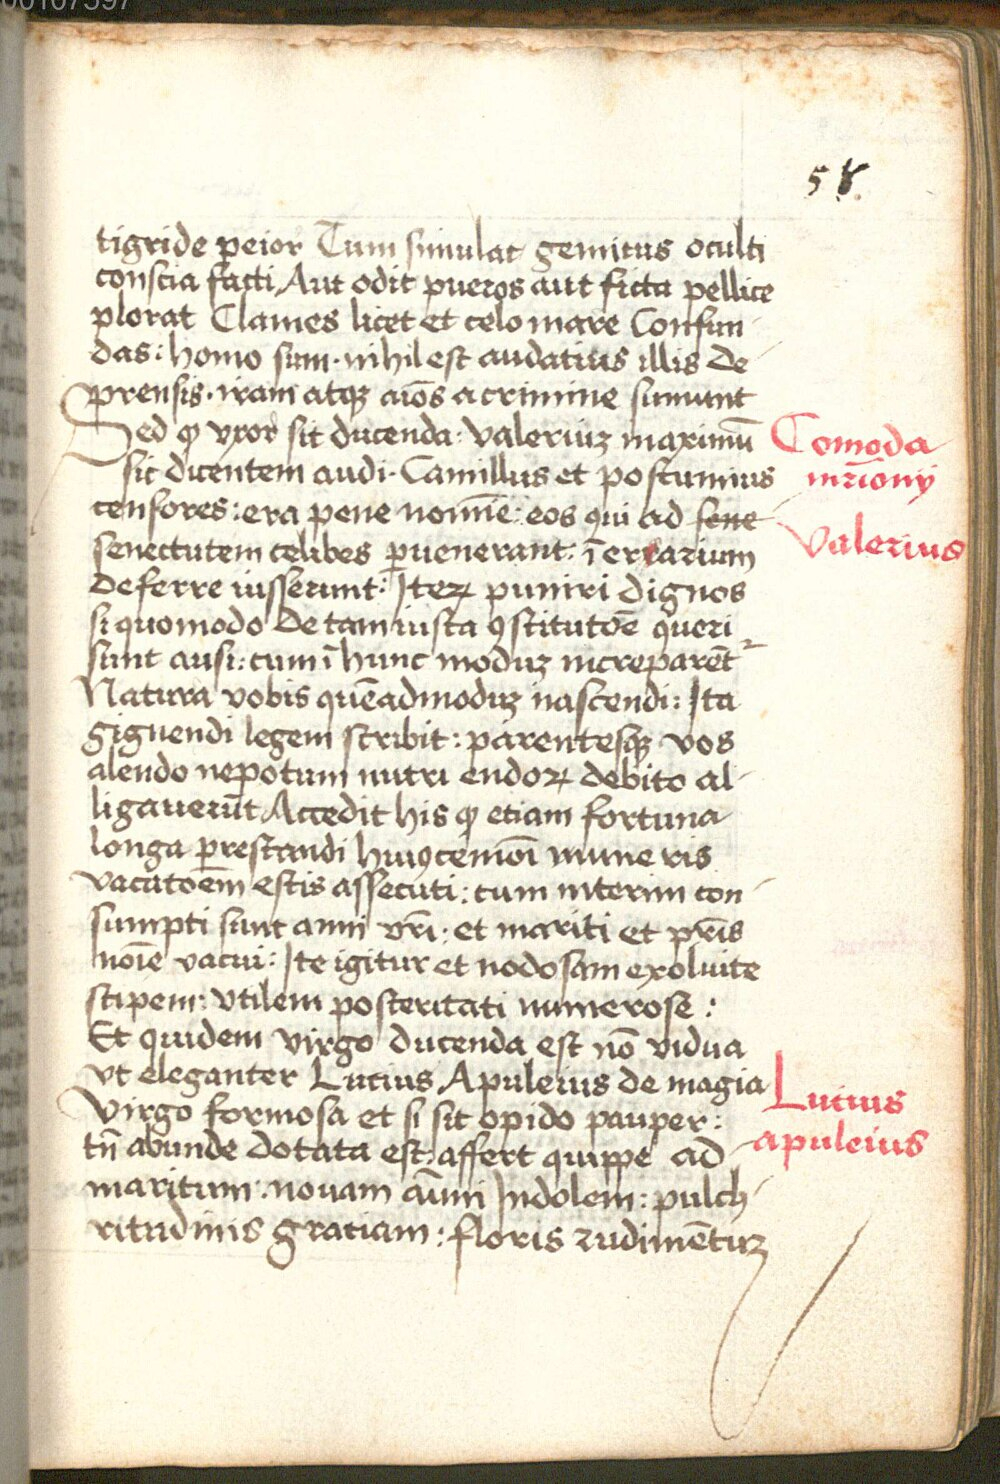 58
tigride peior Tum simulat gemitus oculti
conscia facti Aut odit pueros aut ficta pellice
plorat Clames licet et celo mare Confun
das: homo sum. nihil est audatius illis de
prensis. iram atqꝫ aīos a crimine sumunt
Sed ꝙ vxor sit ducenda: valeriuꝫ maximū
sic dicentem audi. Camillus et postumius
censores: era pene nomīe: eos qui ad sene
senectutem celibes ꝑuenerant: ī erarium
deferre iusserunt: Iteꝝ puniri dignos
si quomodo de tam iusta ꝯstitutōe queri
sunt ausi: cum ī hunc moduꝫ increparēt
Natura vobis quēadmoduꝫ nascendi: Ita
gignendi legem scribit: parentesqꝫ vos
alendo nepotum nutriendoꝝ debito al
ligauerūt Accedit his ꝙ etiam fortuna
longa prestandi huiꝯcemōi muneris
vacatōem estis assecuti: cum interim con
sumpti sunt anni vr̄i: et mariti et pr̄is
noīe vacui: Ite igitur et nodosam exoluite
stipem: vtilem posteritati numerose:
Et quidem virgo ducenda est nō vidua
vt eleganter Lucius Apuleius de magia
Virgo formosa et si sit opido pauper:
tn̄ abunde dotata est: affert quippe ad
maritum: nouam aīmi Indolem: pulch
ritudinis gratiam: floris rudimētuꝫ
Comoda
mr̄ionij
Valerius
Lucius
apuleius